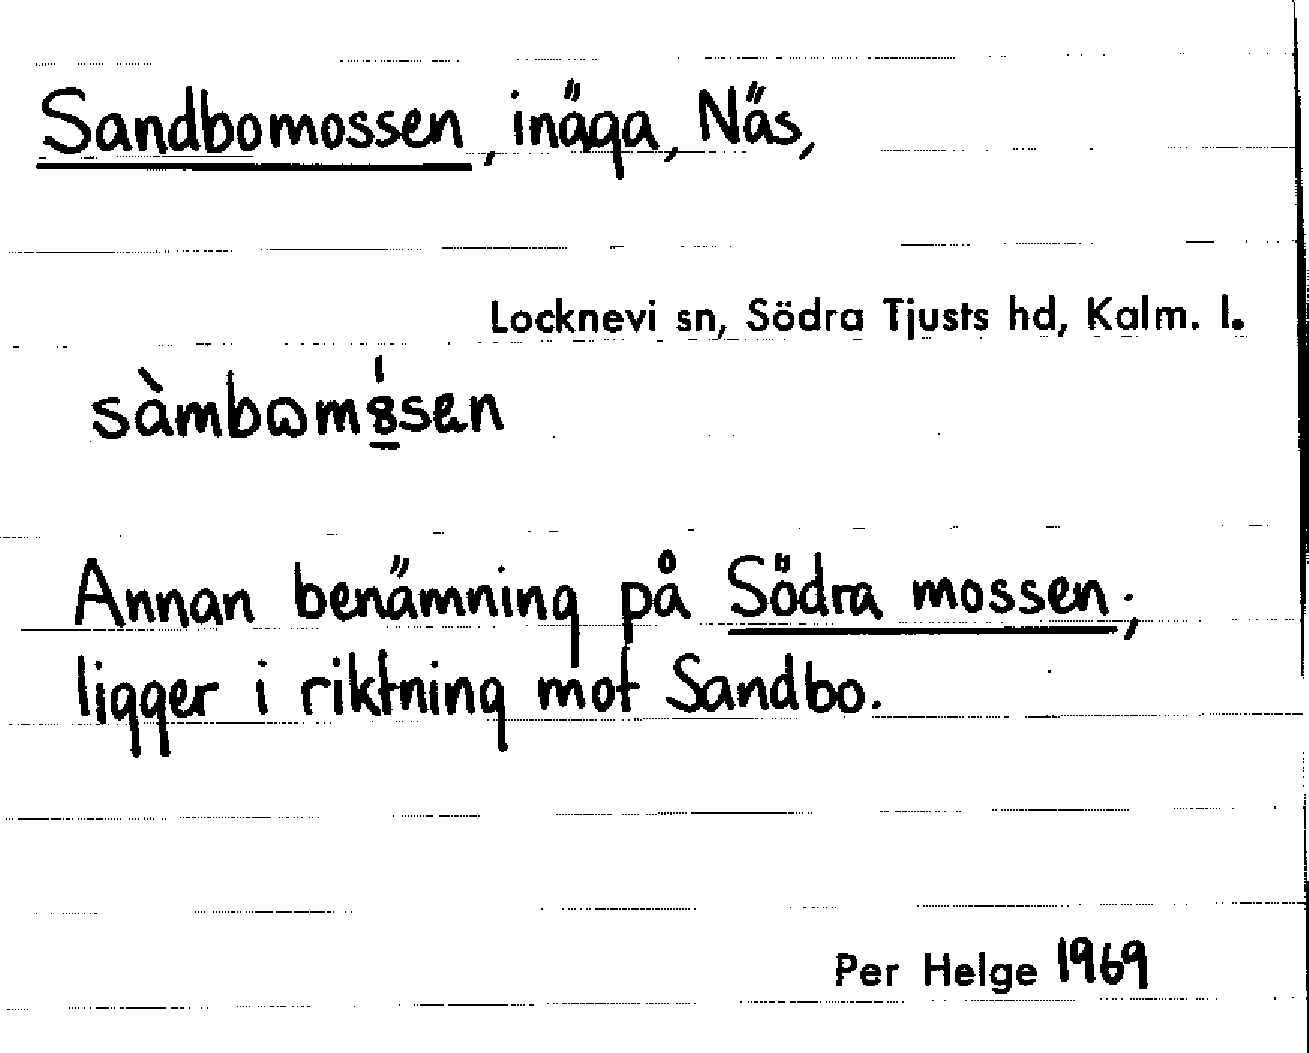 Sandbomossen, inäga, Näs,
Locknevi sn, Södra Tjusts hd, Kalm. l.
sàmbɷm8́sen
Annan benämning på Södra mossen;
ligger i riktning mot Sandbo.
Per Helge 1969